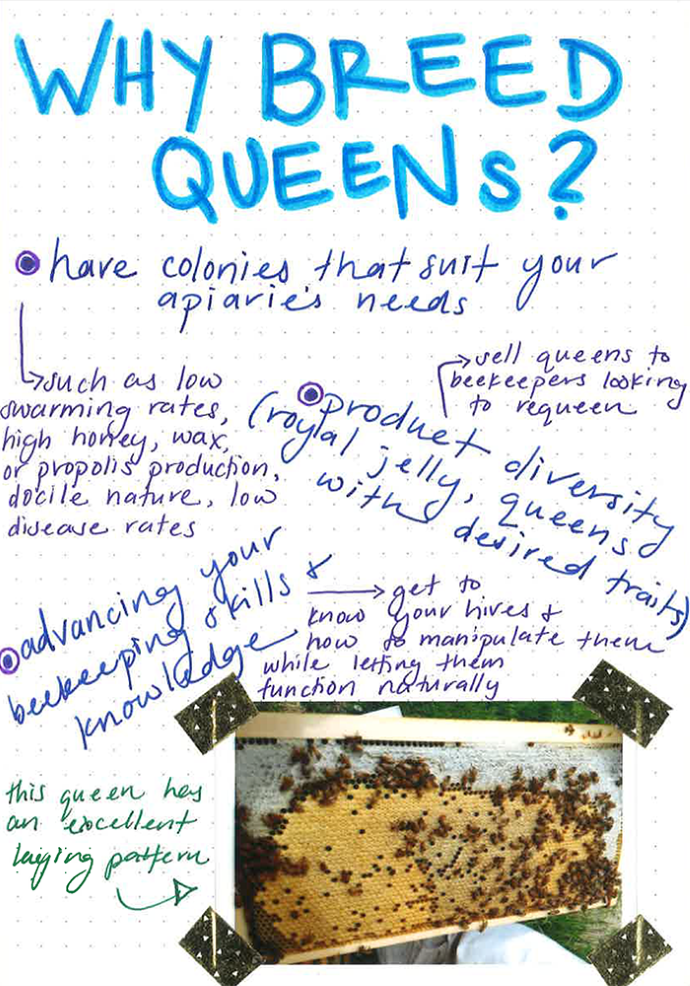 WHY BREED
QUEENS?
have colonies that suit your
apiarie's needs
such as low
swarming rates,
high honey, wax,
or propolis production,
docile nature, low
disease rates
sell queens to
beekeepers looking
to requeen
product diversity
(royal jelly, queens
with desired traits)
advancing your
beekeeping skills &
knowledge
get to
know your hives &
how to manipulate them
while letting them
function naturally
this queen has
an excellent
laying pattern